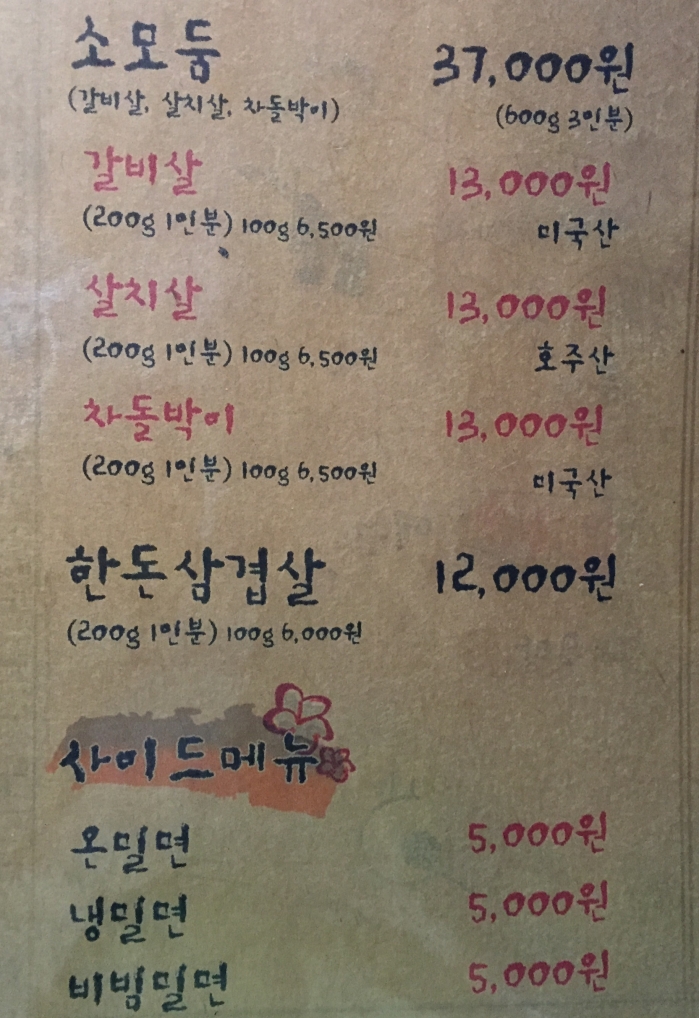 소모둠 37,000원
(갈비살, 살치살, 차돌박이) (600g 3인분)
갈비살 13,000원
(200g 1인분) 100g 6,500원 미국산
살치살 13,000원
(200g 1인분) 100g 6,500원 호주산
차돌박이 13,000원
(200g 1인분) 100g 6,500원 미국산
한돈삼겹살 12,000원
(200g 1인분) 100g 6,000원
사이드메뉴
온밀면 5,000원
냉밀면 5,000원
비빔밀면 5,000원